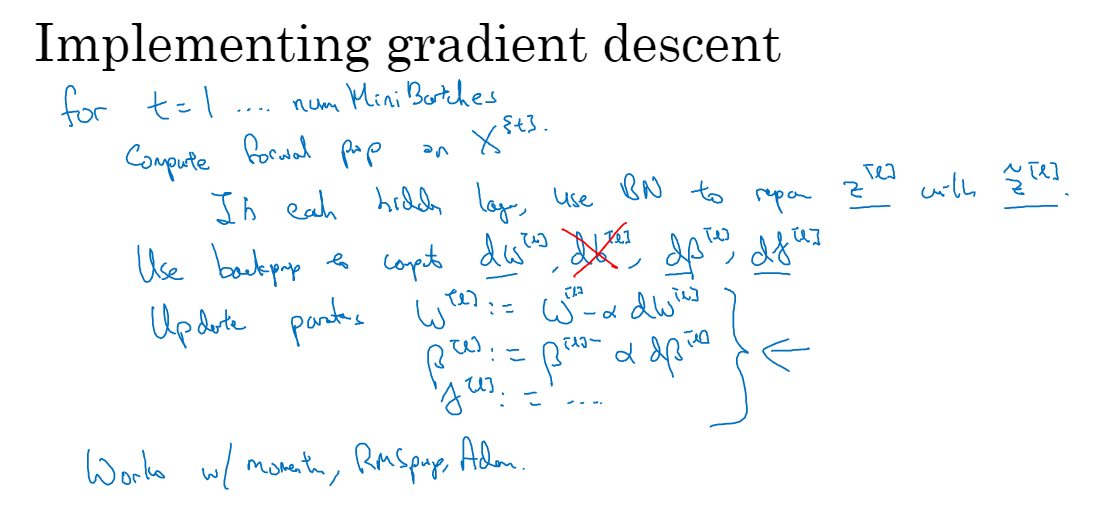 Implementing gradient descent
for t = 1 .... num Mini Batches
Compute forward prop on X^{t}.
In each hidden layer, use BN to repar z^[l] with z̃^[l].
Use backprop to compute dw^[l], db^[l], dβ^[l], dγ^[l]
Update parameters W^[l] := W^[l] - α dW^[l]
β^[l] := β^[l] - α dβ^[l]
γ^[l] := ....
Works w/ momentum, RMSprop, Adam.